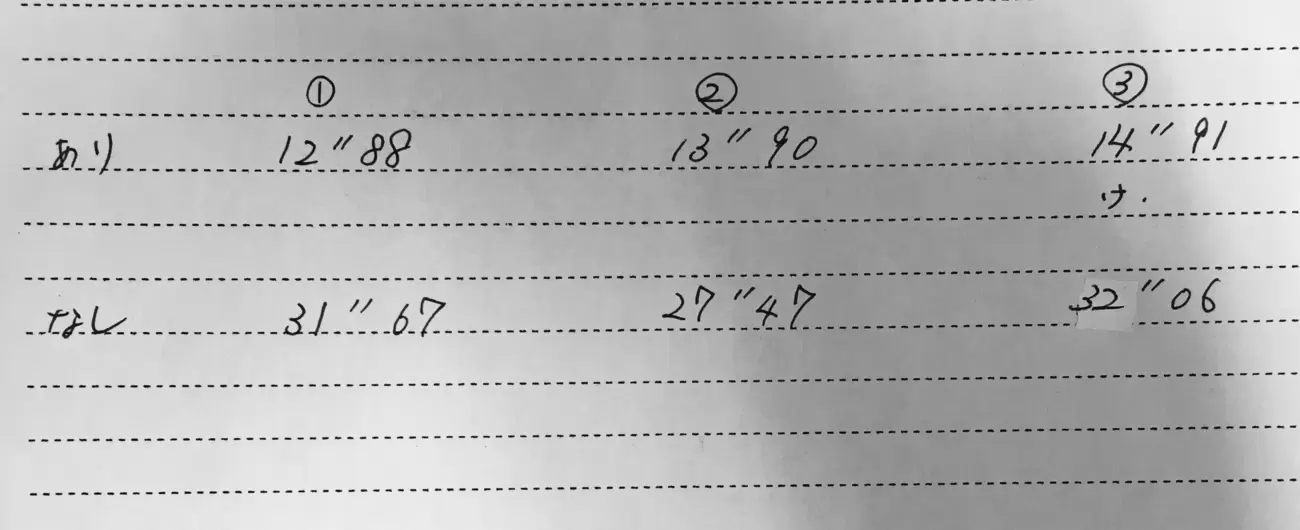 ① ② ③
あり 12"88 13"90 14"91
け
なし 31"67 27"47 32"06